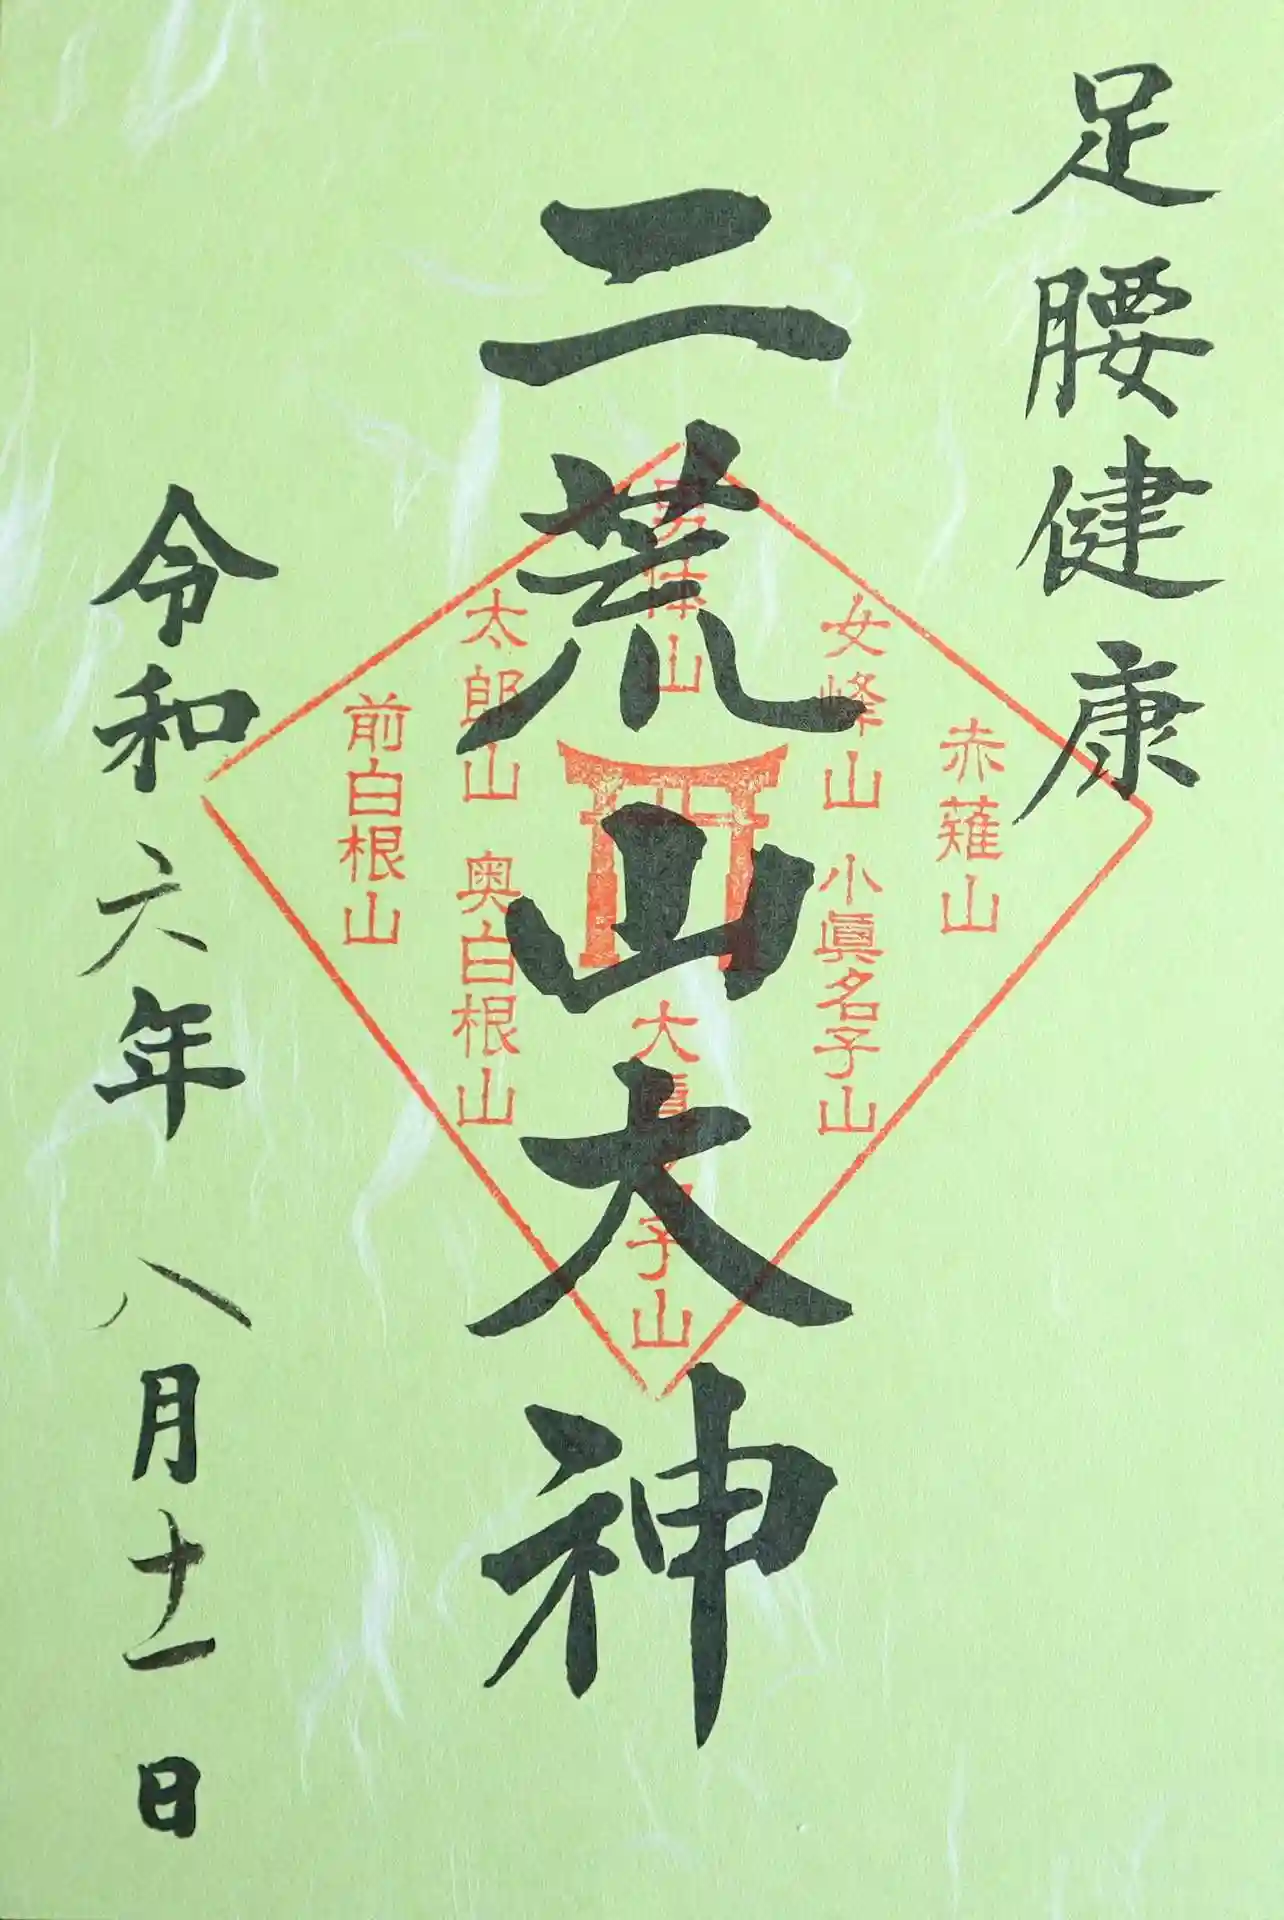 足腰健康
二荒山大神
赤薙山
女峰山 小眞名子山
男体山
大眞名子山
太郎山 奥白根山
前白根山
令和六年 八月十一日